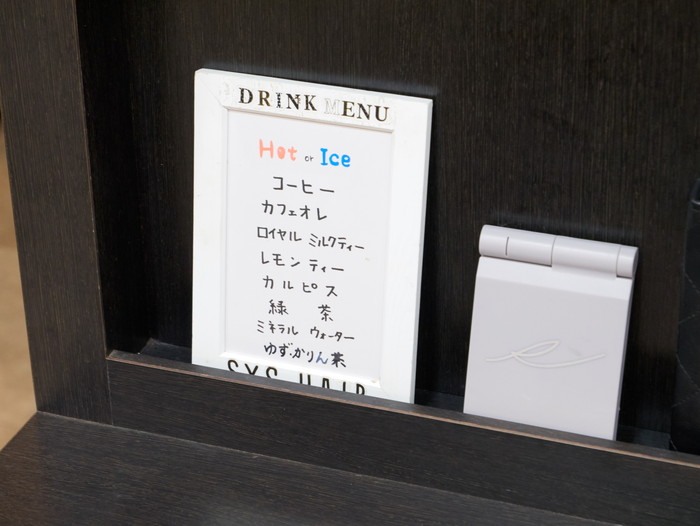 DRINK MENU
Hot or Ice
コーヒー
カフェオレ
ロイヤル ミルクティー
レモンティー
カルピス
緑 茶
ミネラル ウォーター
ゆず・かりん茶
SYS HAIR